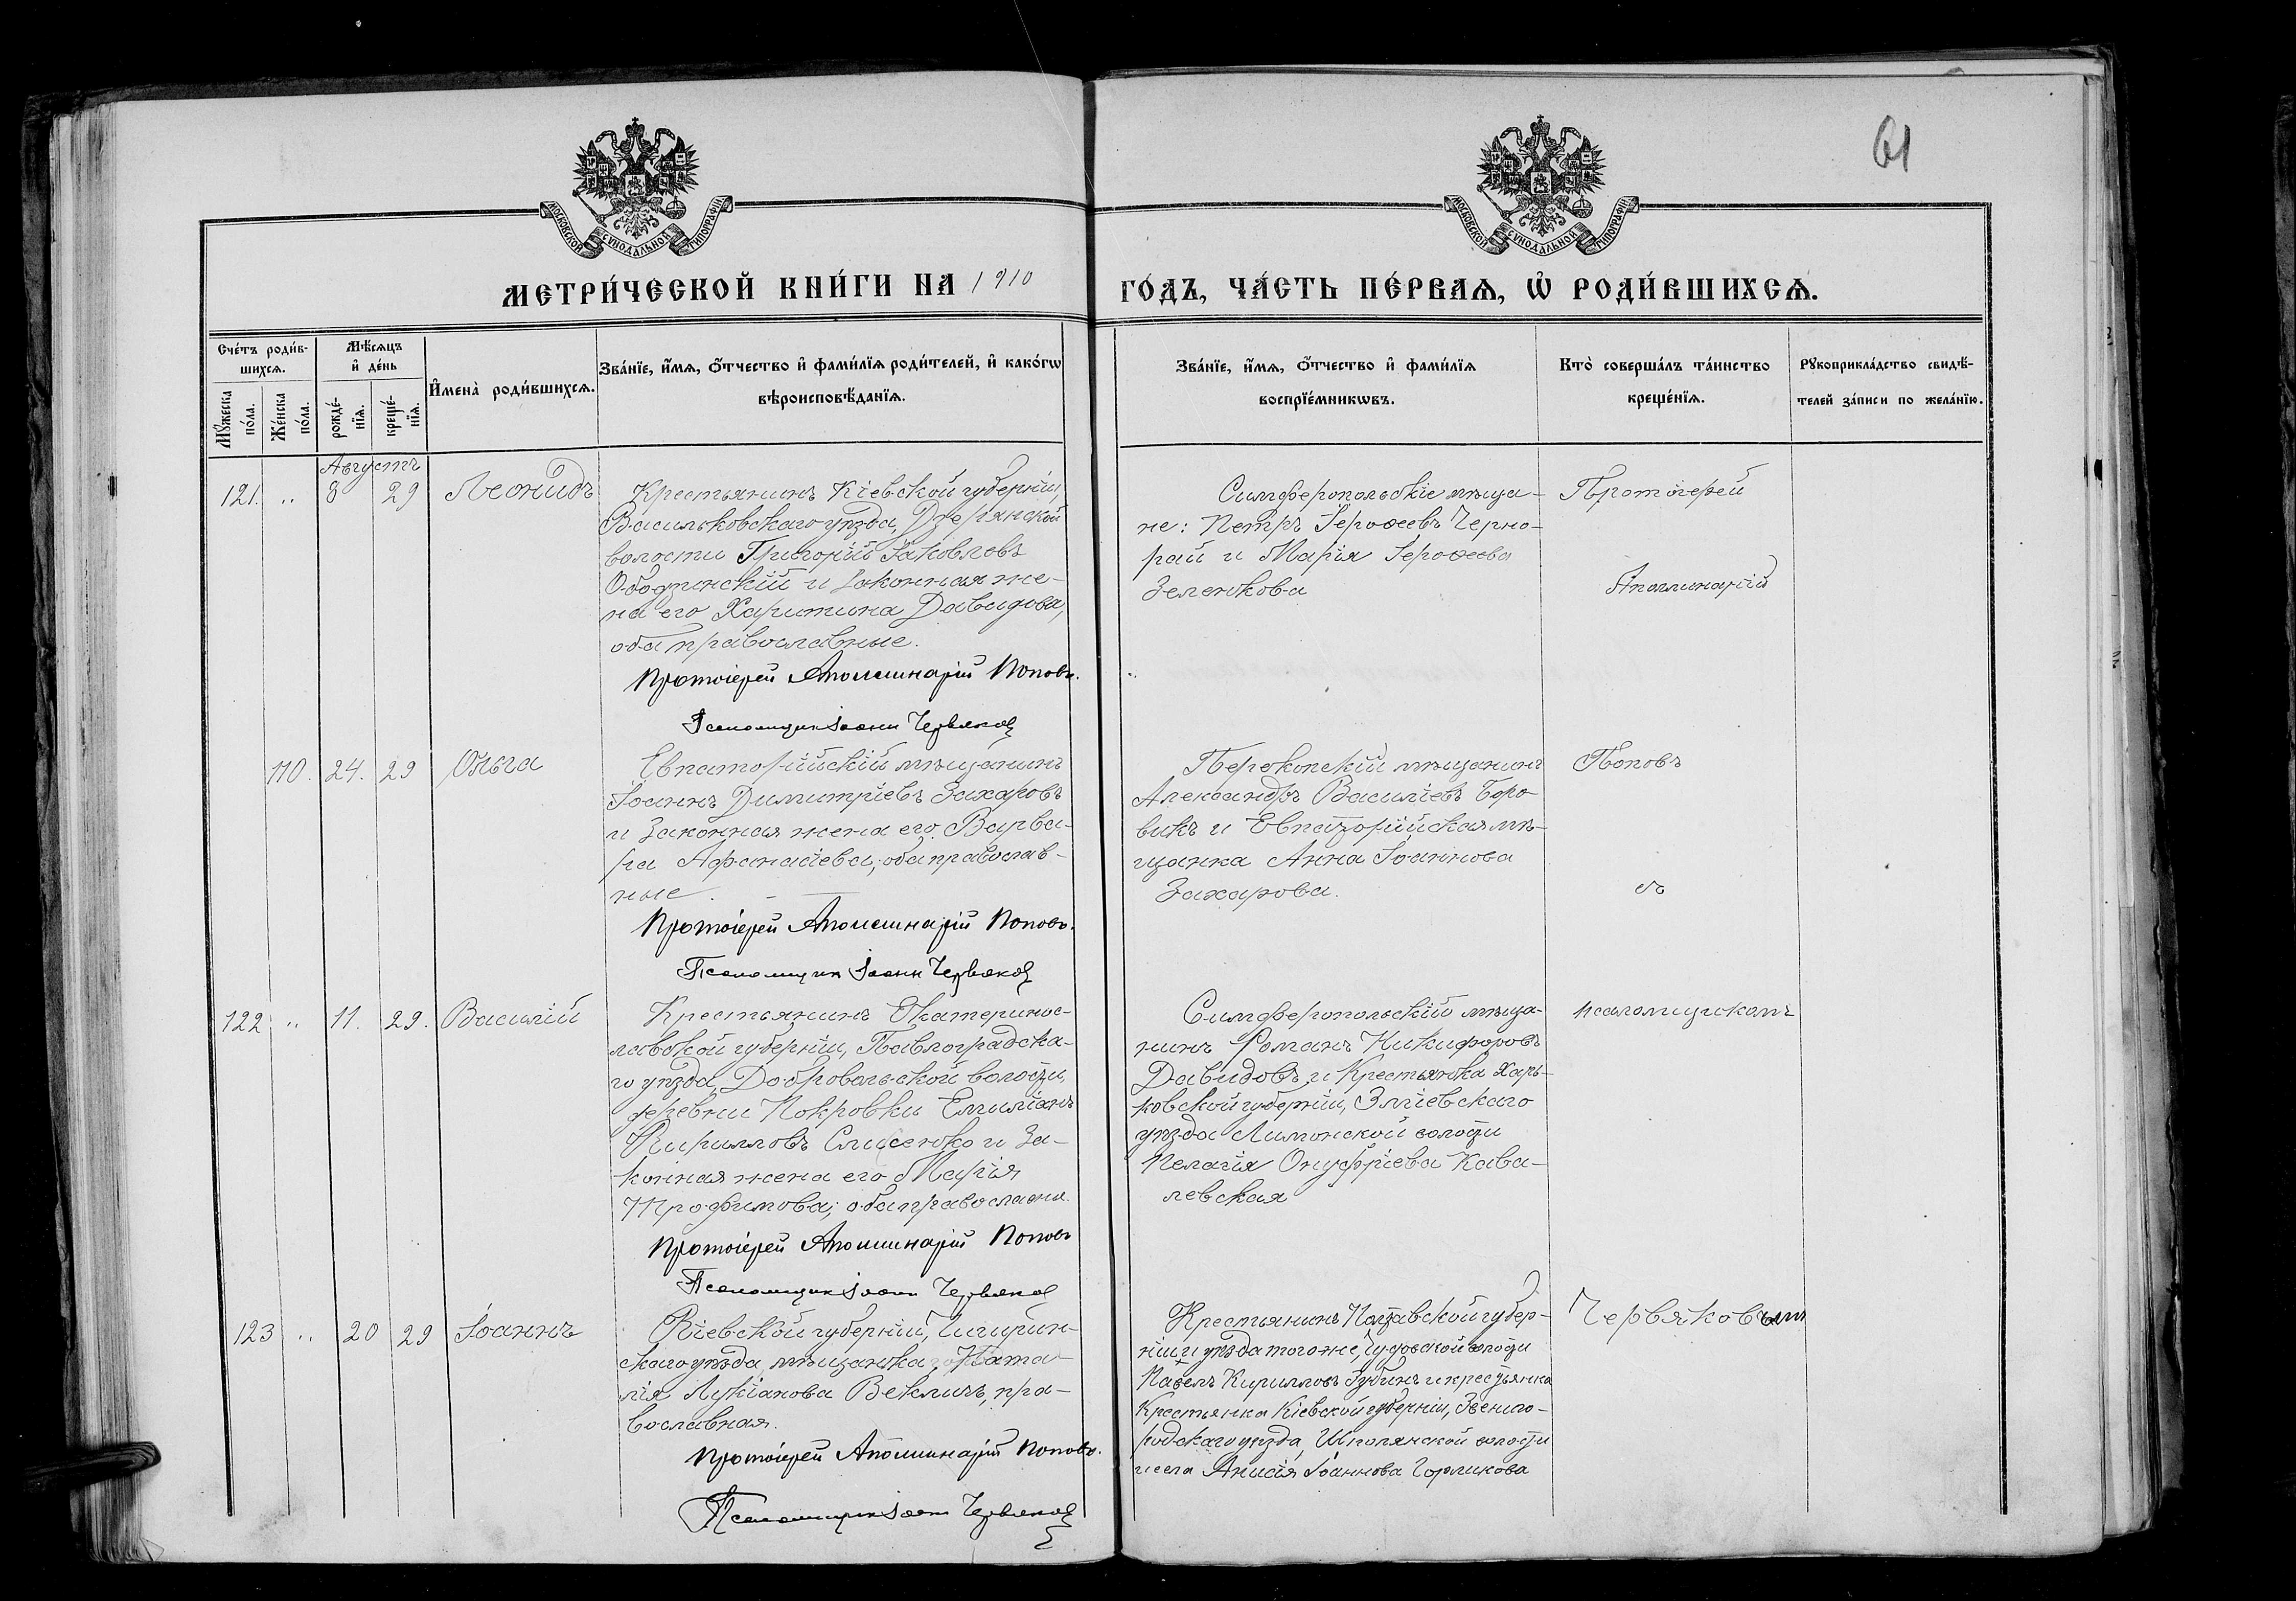 61
МОСКОВСКОЙ СѴНОДАЛЬНОЙ ТИПОГРАФІИ
МОСКОВСКОЙ СѴНОДАЛЬНОЙ ТИПОГРАФІИ
МЕТРИ́ЧЕСКОЙ КНИ́ГИ НА 1910
ГО́ДЪ, ЧА́СТЬ ПЕ́РВАѦ, Ѡ҆ РОДИ́ВШИХСѦ.
Сче́тъ роди́в-
шихсѧ.
Мꙋ́жеска по́ла.
Же́нска по́ла.
Мѣ́сѧцъ
и҆ де́нь
рожде́-
нїѧ.
креще́-
нїѧ.
И҆мена̀ роди́вшихсѧ.
Зва́нїе, и҆́мѧ, ѻ҆́тчество и҆ фами́лїѧ роди́телей, и҆ како́гѡ
вѣроисповѣ́данїѧ.
Зва́нїе, и҆́мѧ, ѻ҆́тчество и҆ фами́лїѧ
воспрїе́мникѡвъ.
Кто̀ соверша́лъ та́инство
креще́нїѧ.
Рꙋкоприкла́дство свидѣ́-
телей за́писи по жела́нїю.
Августъ
121. " 8 29 Леонидъ
Крестьянинъ Кіевской губерніи,
Васильковскаго уѣзда,
волости Григорій Іаковлевъ
Ободзинскій и законная же-
на его Харитина Давидова,
оба православные.
Протоіерей Аполлинарій Поповъ.
Псаломщикъ Іоаннъ Червяковъ
Симферопольскіе мѣща-
не: Петръ Іероѳеевъ Черно-
рай и Марія Іероѳеева
Зеленкова
Протоіерей
Аполлинарій
110. 24. 29 Ольга
Евпаторійскій мѣщанинъ
Іоаннъ Димитріевъ Захаровъ
и законная жена его Варва-
ра Афанасіева; оба православ-
ные.
Протоіерей Аполлинарій Поповъ.
Псаломщикъ Іоаннъ Червяковъ
Перекопскій мѣщанинъ
Александръ Василіевъ Боро-
викъ и Евпаторійская мѣ-
щанка Анна Іоаннова
Захарова.
Поповъ
съ
122 " 11. 29. Василій
Крестьянинъ Екатеринос-
лавской губерніи, Павлоградска-
го уѣзда, Добровольской волости,
деревни Покровки Емиліанъ
Кирилловъ Слисенко и за-
конная жена его Марія
Трофимова; оба православн.
Протоіерей Аполлинарій Поповъ
Псаломщикъ Іоаннъ Червяковъ
Симферопольскій мѣща-
нинъ Романъ Никифоровъ
Давидовъ и крестьянка Харь-
ковской губерніи, Зміевскаго
уѣзда Лиманской волости
Пелагія Онуфріева Кова-
левская
псаломщикомъ
123 " 20 29 Іоаннъ
Кіевской губерніи, Чигирин-
скаго уѣзда, мѣщанка Ната-
лія Лукіанова Векличъ, пра-
вославная.
Протоіерей Аполлинарій Поповъ.
Псаломщикъ Іоаннъ Червяковъ
Крестьянинъ Полтавской губер-
ніи и уѣзда того же, волости
Павелъ Кирилловъ Губинъ и крестьянка
Крестьянка Кіевской губерніи, Звениго-
родскаго уѣзда, Шполянской волости
и села Анисія Іоаннова Горликова
Червяковымъ